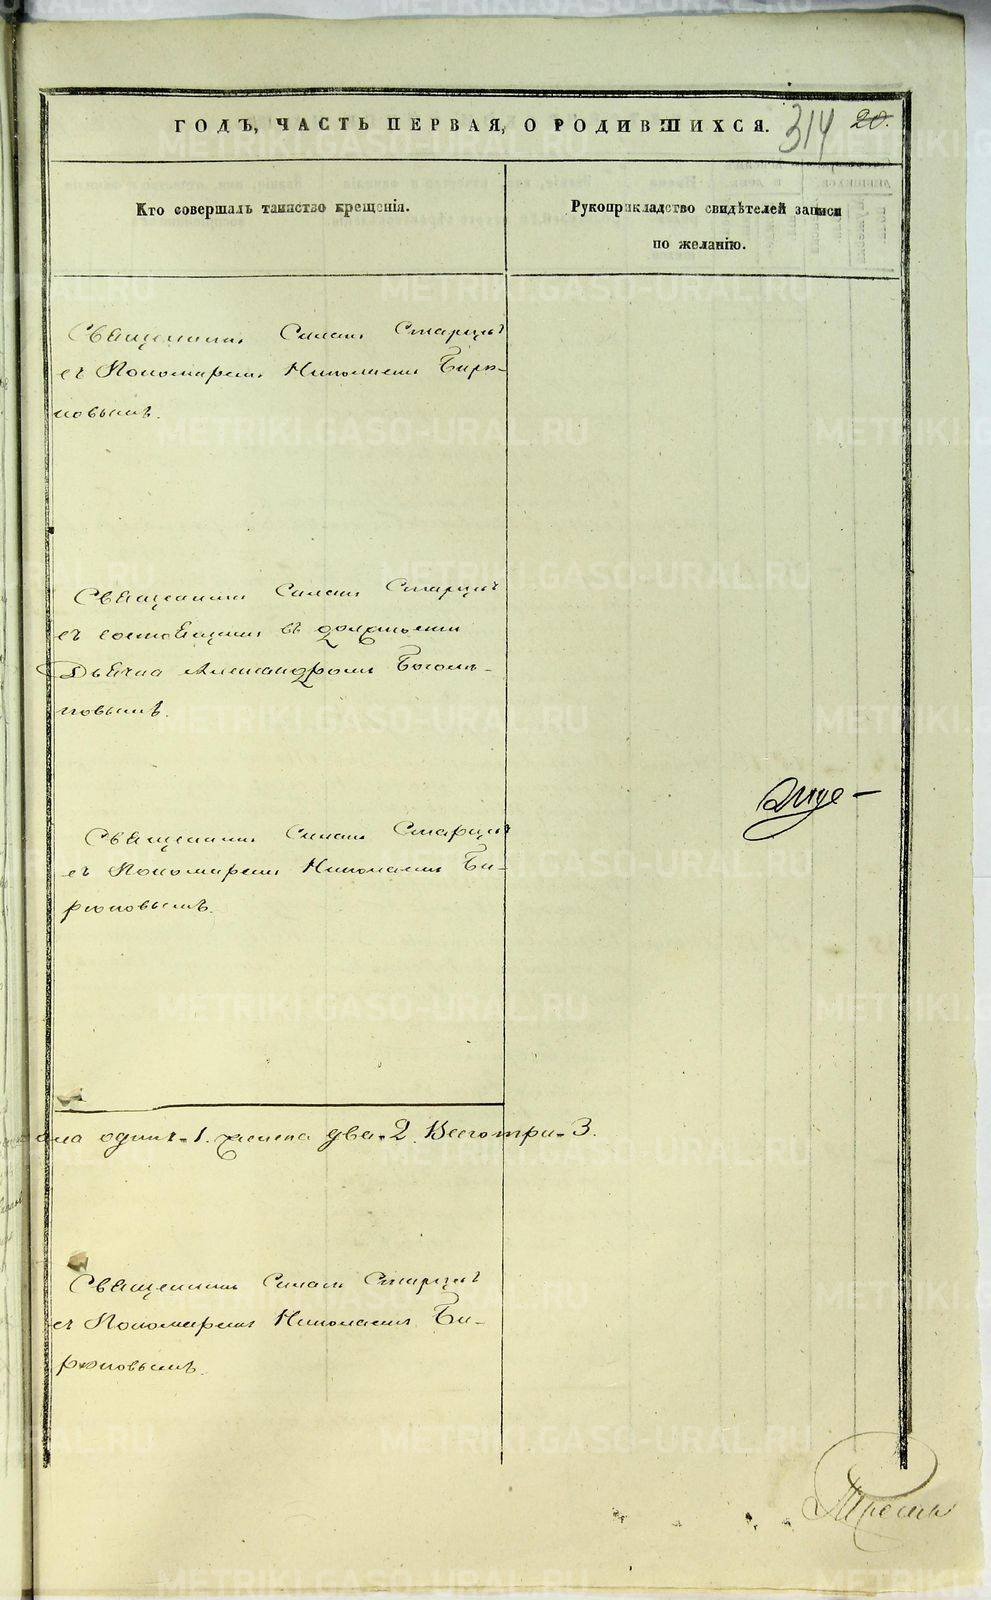 ГОДЪ, ЧАСТЬ ПЕРВАЯ, О РОДИВШИХСЯ.
314 20.
Кто совершалъ таинство крещенія.
Рукоприкладство свидѣтелей записи
по желанію.
Священникъ Симеонъ Старцевъ
съ Пономаремъ Николаемъ Бирю-
ковымъ.
Священникъ Симеонъ Старцевъ
съ состоящимъ въ должности
Дьячка Александромъ Богомо-
ловымъ.
Священникъ Симеонъ Старцевъ
съ Пономаремъ Николаемъ Би-
рюковымъ.
ска одинъ - 1. женска два - 2. Всего три - 3.
Священникъ Симеонъ Старцевъ
съ Пономаремъ Николаемъ Би-
рюковымъ.
METRIKI.GASO-URAL.RU